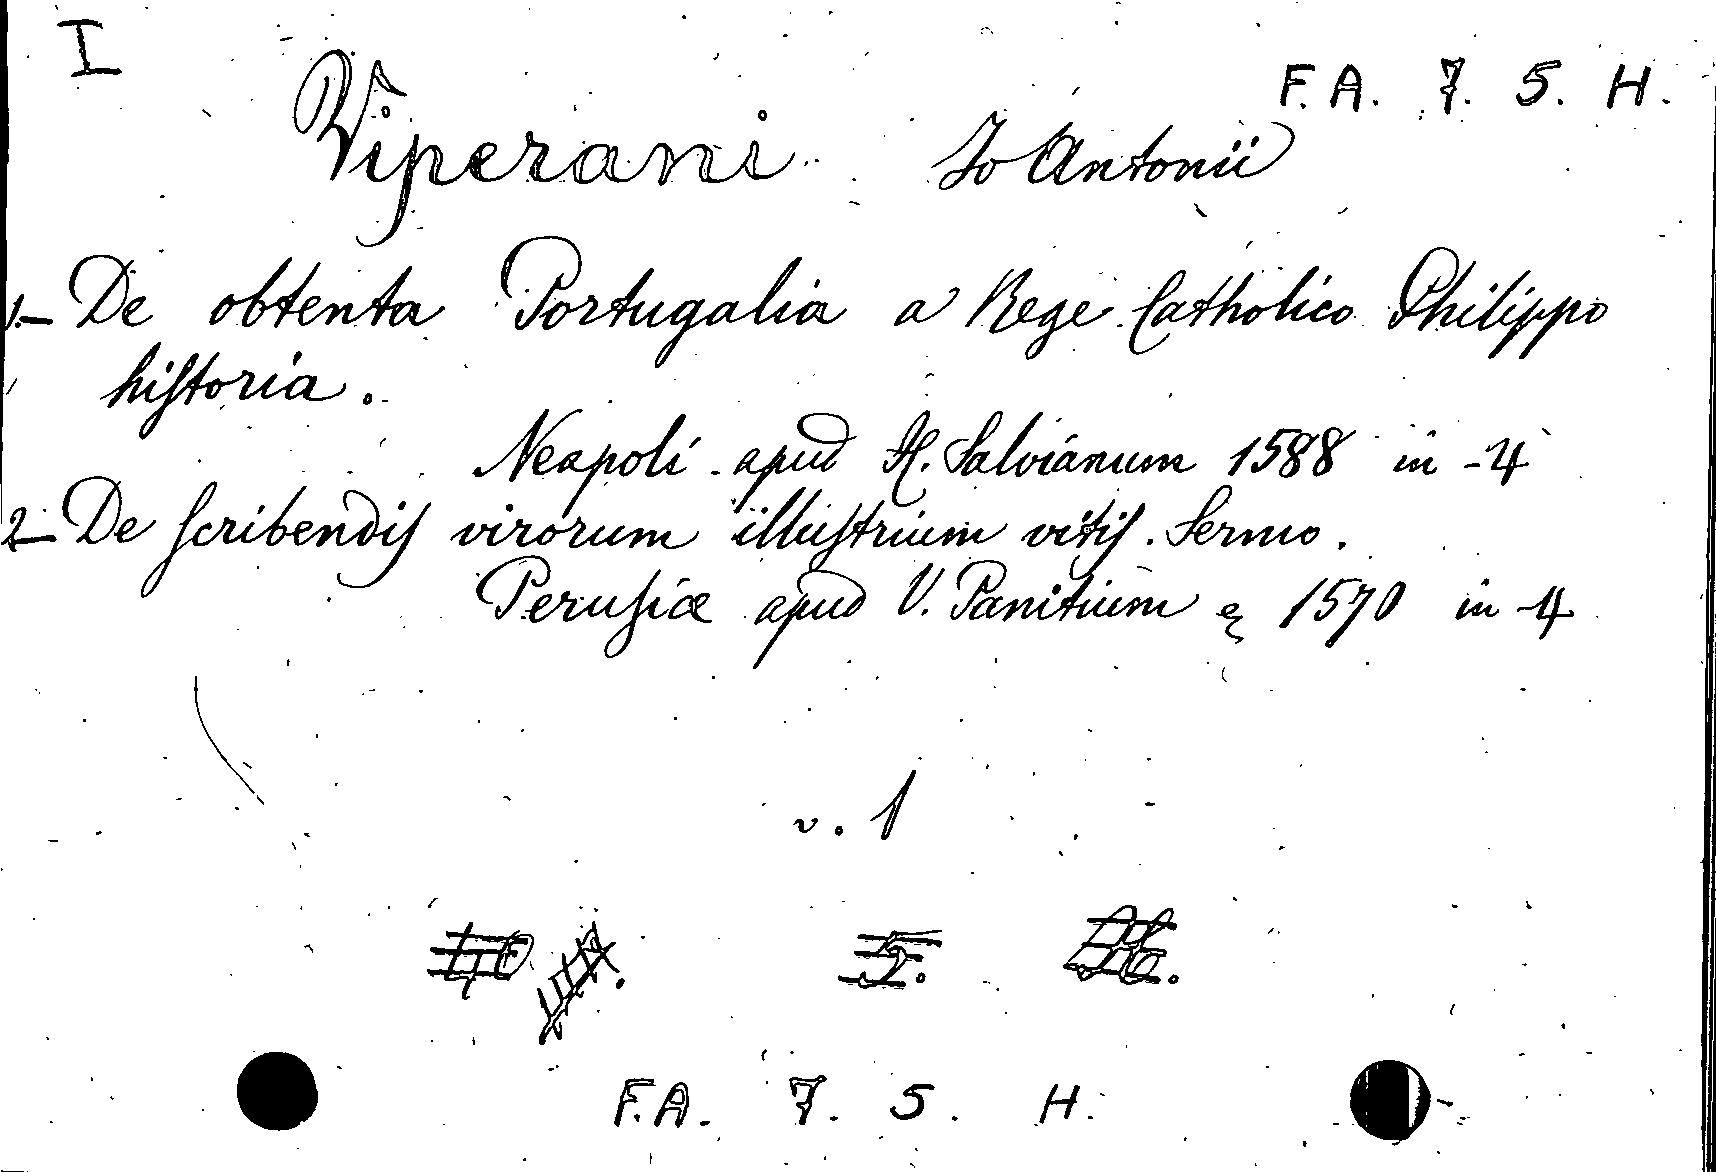 I
F. A. 7. 5. H.
Viperani Jo Antonii
1.- De obtenta Portugalia a Rege Catholico Philippo
hiſtoria.
Neapoli apud H. Salvianum 1588 in-4
2- De ſcribendiſ virorum illuſtrium vitiſ. Sermo.
Peruſiæ apud V. Panitium 1570 in-4
v. 1
5. H.
F. A. 7. 5. H.